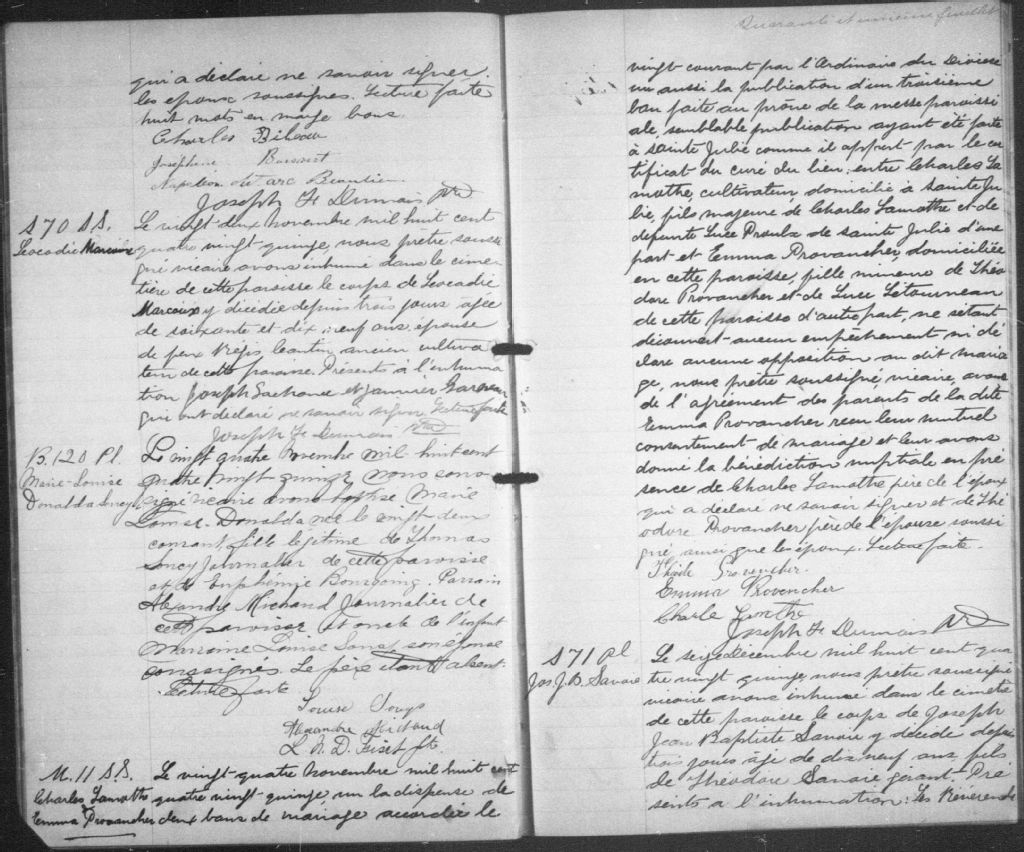 qui a declaré ne savoir signer.
les epoux soussignes. Lecture faite
huit mots en marge bons.
Charles Bilodeau
Josephine
Napoleon
Joseph F Dumais ptr
S 70 SS.
Leocadie Marcoux
Le vingt deux novembre mil huit cent
quatre vingt quinze, nous prêtre soussi
gné vicaire avons inhumé dans le cime
tière de cette paroisse le corps de Leocadie
Marcoux y décédée depuis trois jours agée
de soixante et dix neuf ans, épouse
de feux Régis ancien cultiva
teur de cette paroisse. Présents à l'inhuma
tion Joseph Lachance et Janvier
qui ont declaré ne savoir signer. Lecture faite
Joseph F Dumais ptr
B. 120 Pl.
Marie-Louise
Donalda
Le vingt quatre Novembre mil huit cent
quatre vingt quinze nous sous
signé vicaire avons baptisé Marie
Louise-Donalda née le vingt deux
courant, fille legitime de Thomas
Journalier de cette paroisse
et de Euphémie Bourgoing. Parrain
Alexandre Michaud Journalier de
cette paroisse et oncle de l'enfant
Marraine Louise son épouse
consignés. Le père étant absent.
Lecture faite
Louise
Alexandre Michaud
L. A. D. Fiset
M. 11 SS.
Charles Lamothe
Emma Provancher
Le vingt quatre novembre mil huit cent
quatre vingt quinze vu la dispense de
deux bans de mariage accordée le
Quarante et unième feuillet
vingt courant par l'Ordinaire du Diocèse
vu aussi la publication d'un troisième
ban faite au prône de la messe paroissi
ale, semblable publication ayant été faite
à sainte Julie comme il appert par le cer
tificat du curé du lieu: entre Charles La
mothe, cultivateur, domicilié à sainte Ju
lie, fils majeure de Charles Lamothe et de
défunte Luce Proulx de sainte Julie d'une
part et Emma Provancher, domiciliée
en cette paroisse, fille mineure de Théo
dore Provancher et de Luce Létourneau
de cette paroisse d'autre part, ne s'étant
découvert aucun empêchement ni dé
claré aucune opposition au dit maria
ge, nous prêtre soussigné, vicaire, avons
de l'agrément des parents de la dite
Emma Provancher recu leur mutuel
consentement de mariage et leur avons
donné la bénédiction nuptiale en pré
sence de Charles Lamothe père de l'époux
qui a déclaré ne savoir signer et de Thé
odore Provancher père de l'épouse soussi
gné, ainsi que les époux. Lecture faite.
Provencher.
Emma Provencher
Charle
Joseph F Dumais ptr
S 71 Pl
Jos. J. B. Savoie
Le seize décembre mil huit cent qua
tre vingt quinze, nous prêtre soussigné
vicaire avons inhumé dans le cimetière
de cette paroisse le corps de Joseph
Jean Baptiste Savoie y décédé depuis
trois jours âgé de dix neuf ans fils
de Théodore Savoie gérant. Pré
sents a l'inhumation: les Révérends